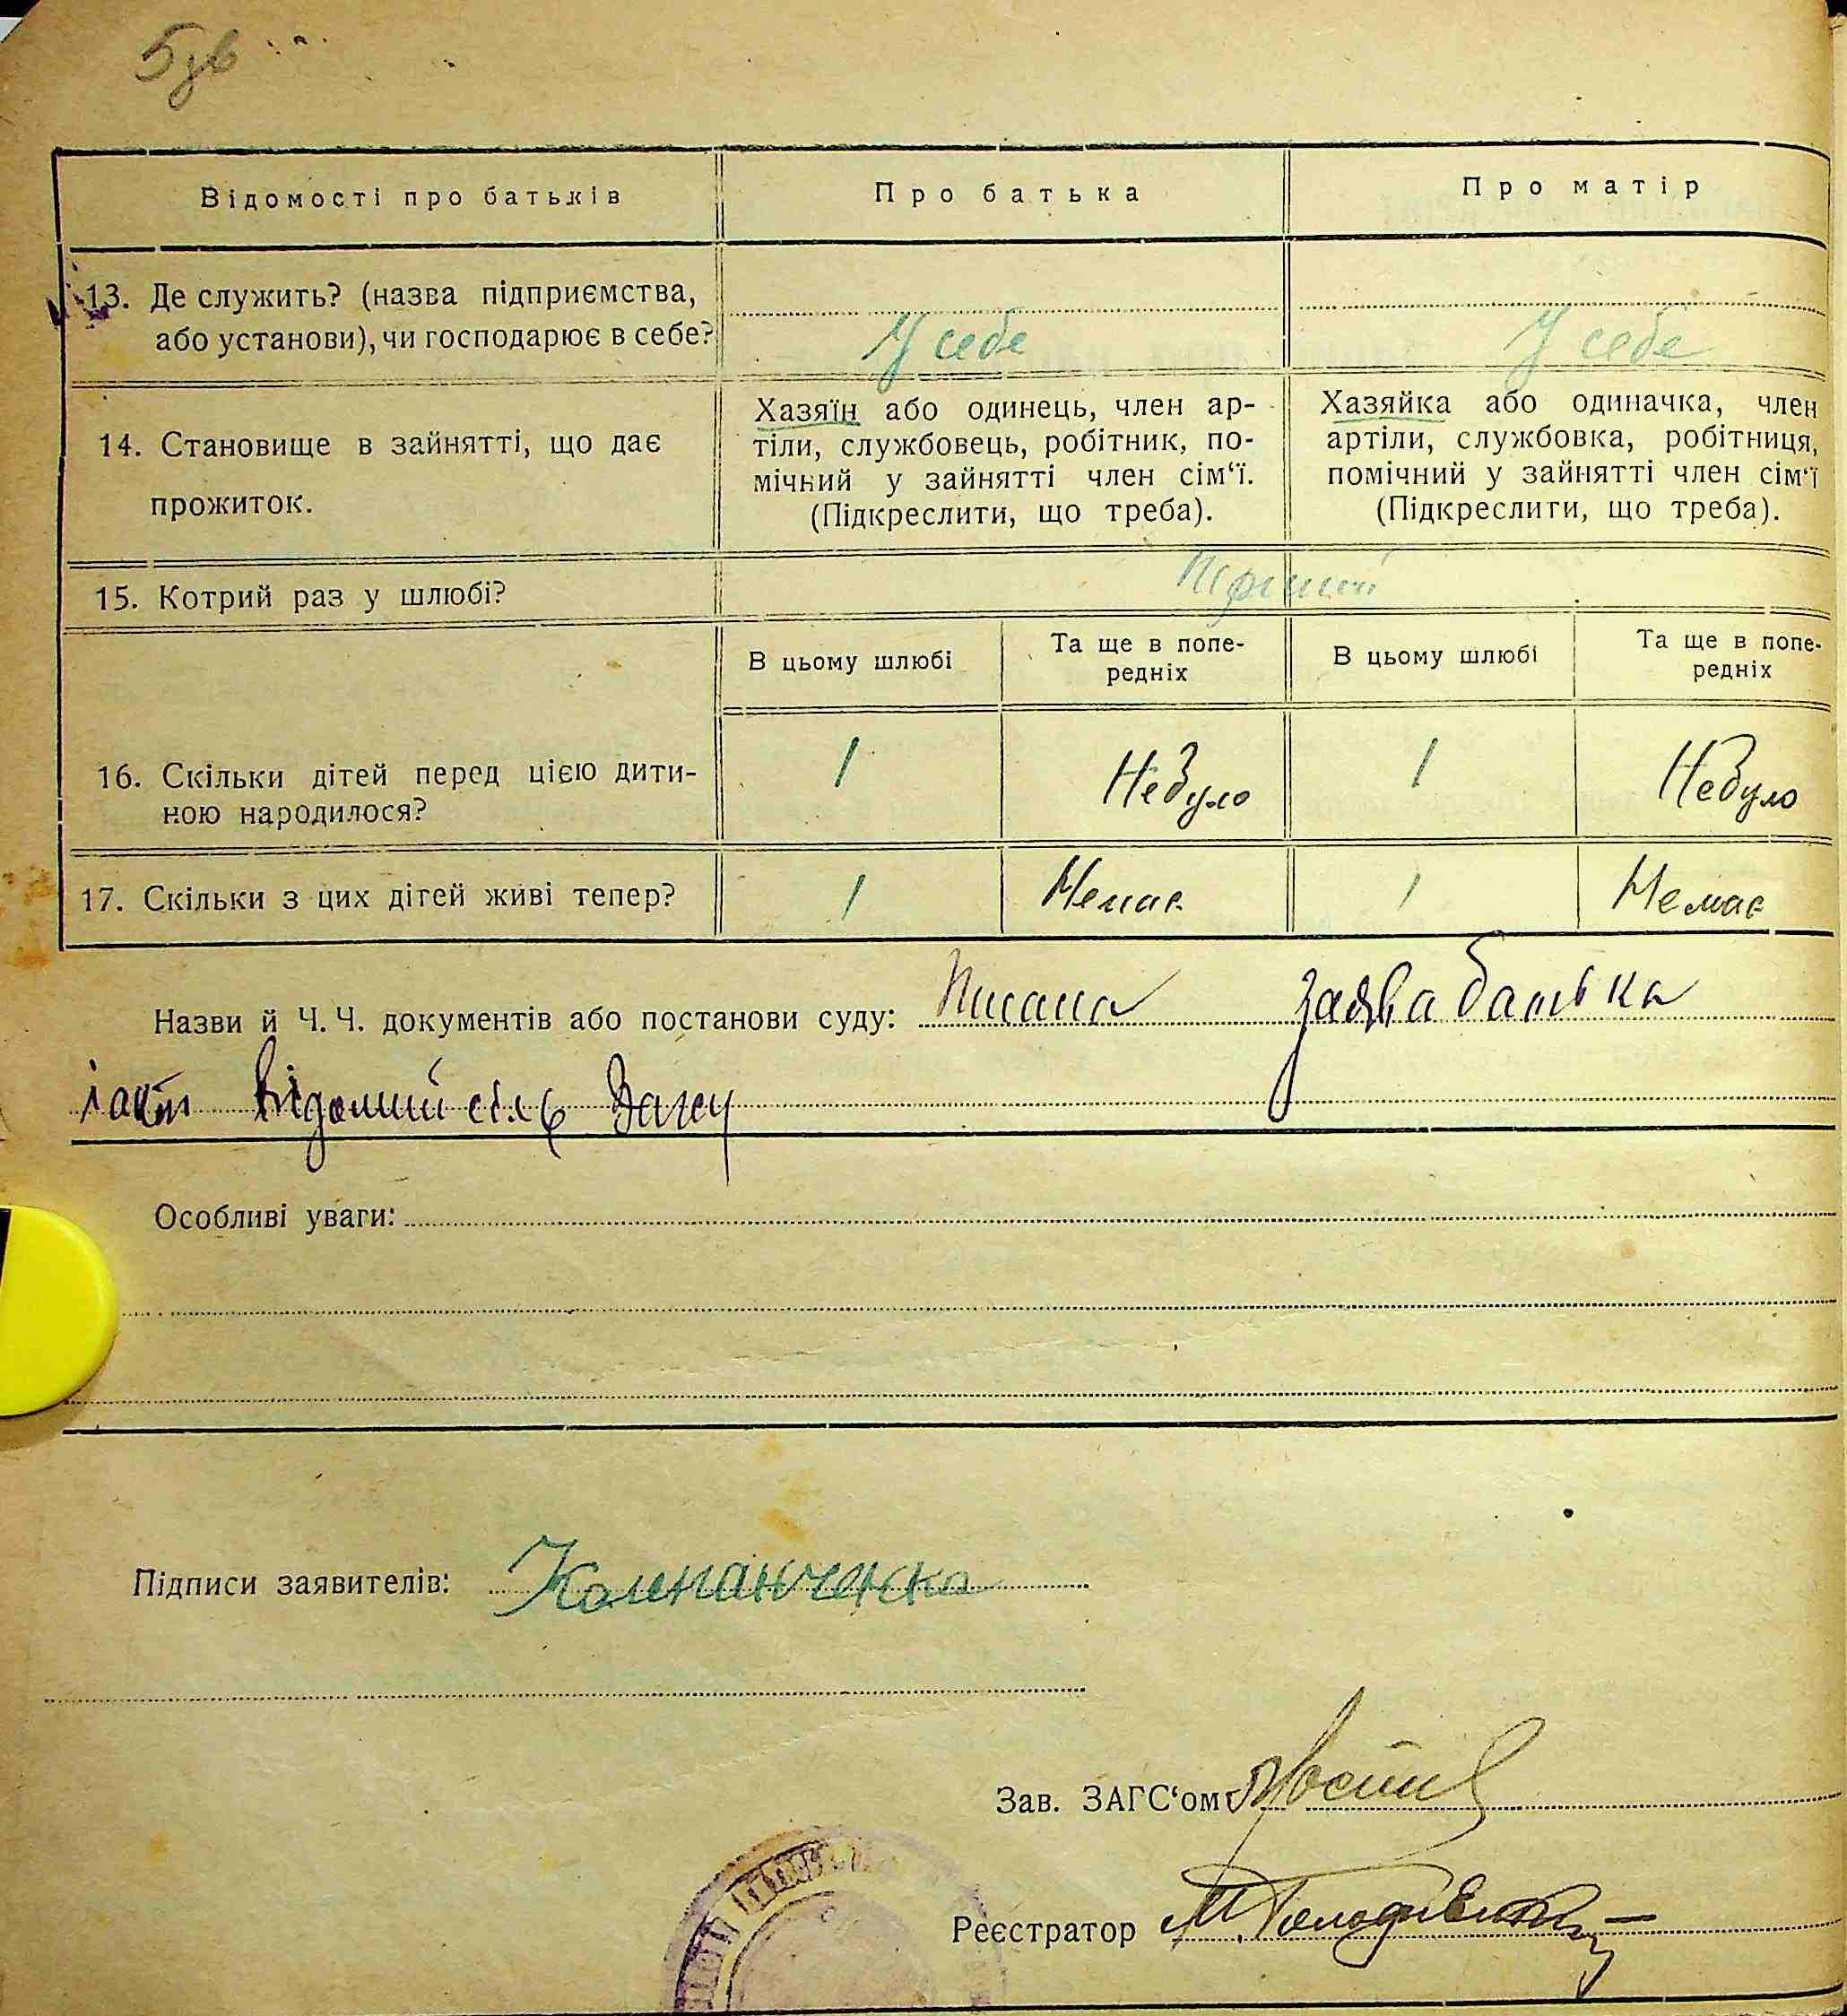 5зв
Відомості про батьків
Про батька
Про матір
13. Де служить? (назва підприємства,
або установи), чи господарює в себе?
У себе
У себе
14. Становище в зайнятті, що дає
прожиток.
Хазяїн або одинець, член ар-
тіли, службовець, робітник, по-
мічний у зайнятті член сім‘ї.
(Підкреслити, що треба).
Хазяйка або одиначка, член
артіли, службовка, робітниця,
помічний у зайнятті член сім‘ї
(Підкреслити, що треба).
15. Котрий раз у шлюбі?
Перший
В цьому шлюбі
Та ще в попе-
редніх
В цьому шлюбі
Та ще в попе-
редніх
16. Скільки дітей перед цією дити-
ною народилося?
1
Небуло
1
Небуло
17. Скільки з цих дітей живі тепер?
1
Немає
1
Немає
Назви й Ч. Ч. документів або постанови суду: Писана заява батька
і акт відомий сіль Загсу
Особливі уваги:
Підписи заявителів: Компанченко
Зав. ЗАГС‘ом
Реєстратор